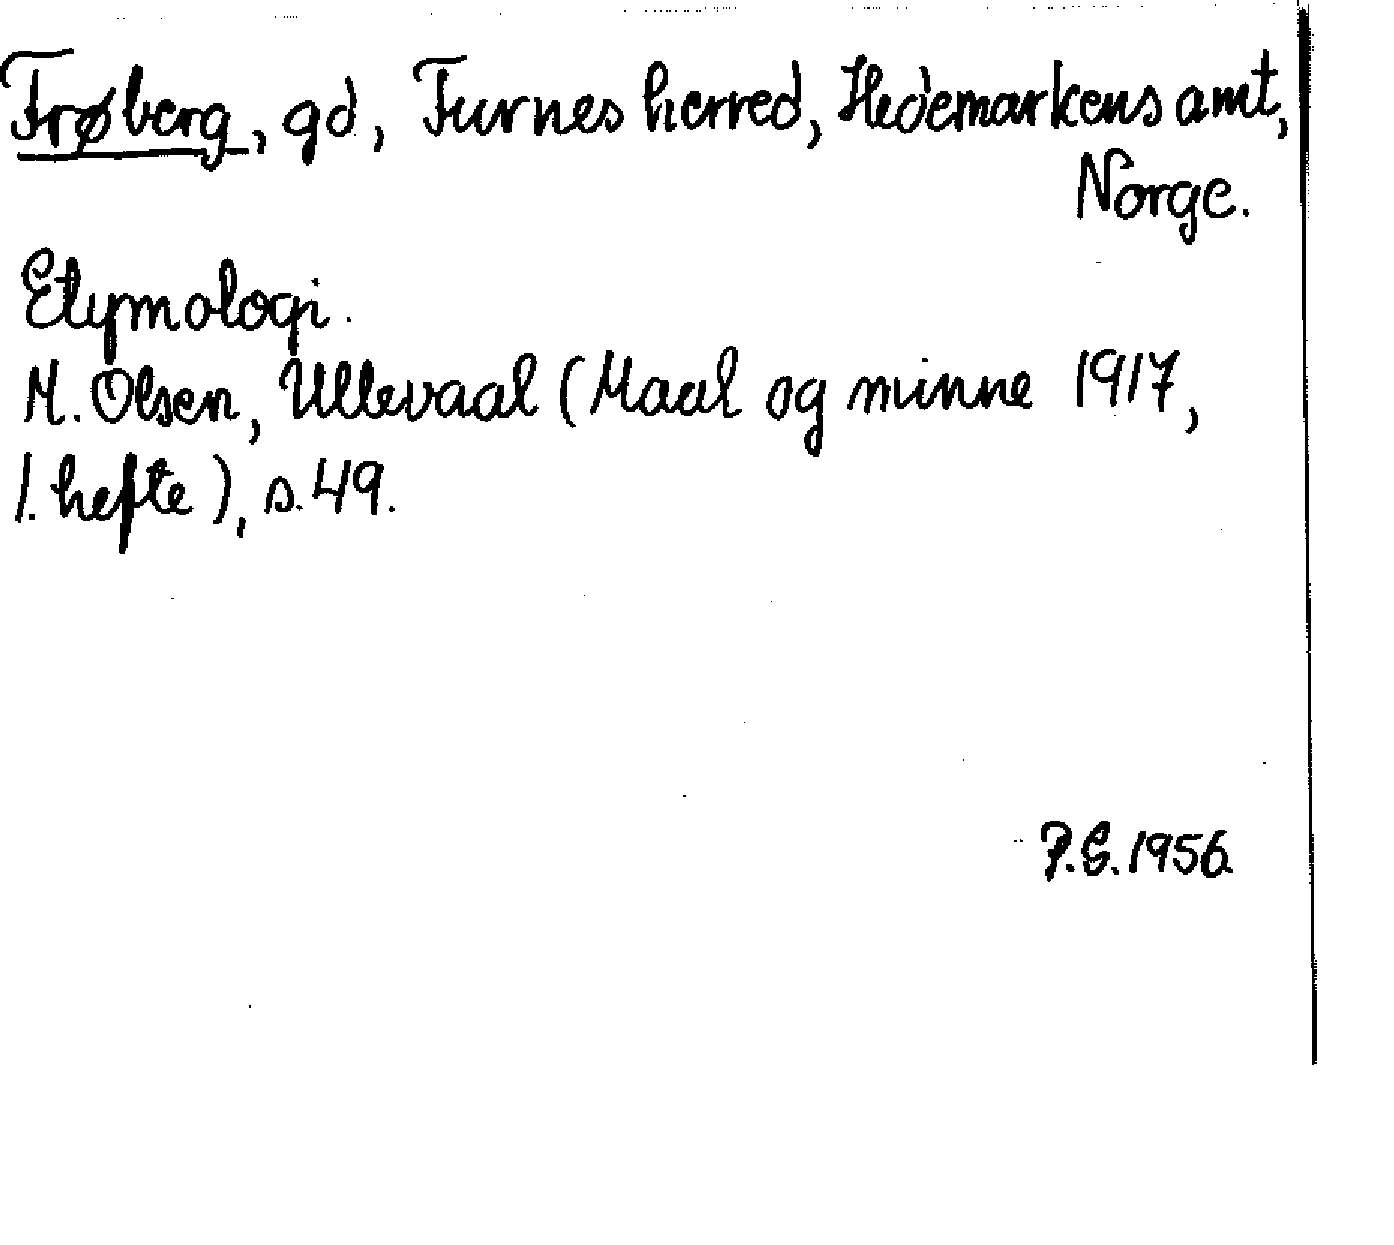 Frøberg, gd, Furnes herred, Hedemarkens amt,
Norge.
Etymologi.
M. Olsen, Ullevaal (Maal og minne 1917,
1. hefte), s. 49.
P.G. 1956.